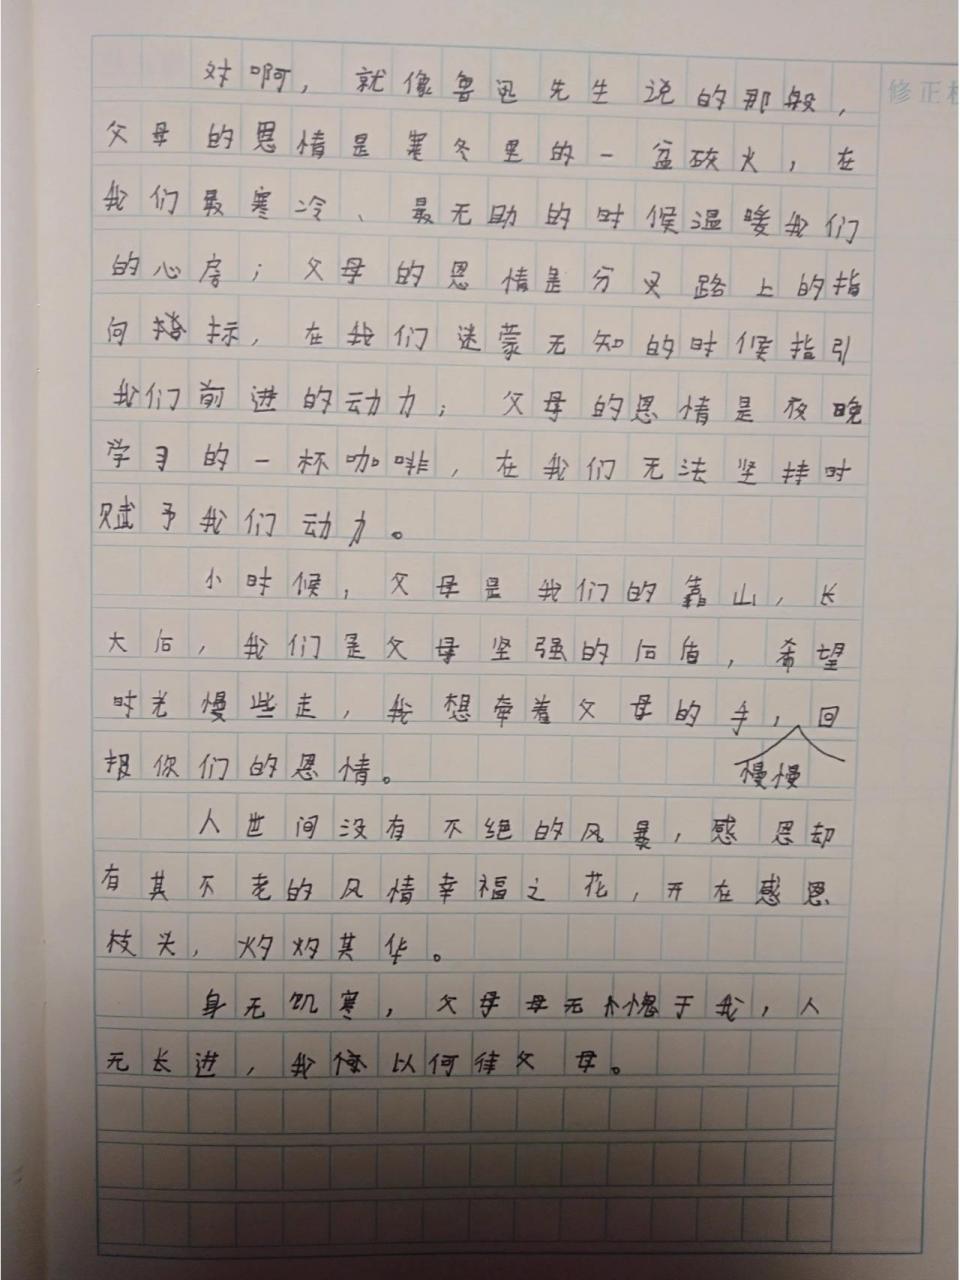 对啊，就像鲁迅先生说的那般，
修正
父母的恩情是寒冬里的一盆碳火，在
我们最寒冷、最无助的时候温暖我们
的心房；父母的恩情是分叉路上的指
向标，在我们迷蒙无知的时候指引
我们前进的动力；父母的恩情是夜晚
学习的一杯咖啡，在我们无法坚持时
赋予我们动力。
小时候，父母是我们的靠山，长
大后，我们是父母坚强的后盾，希望
时光慢些走，我想牵着父母的手，回
慢慢
报你们的恩情。
人世间没有不绝的风暴，感恩却
有其不老的风情幸福之花，开在感恩
枝头，灼灼其华。
身无饥寒，父母无愧于我，人
无长进，我以何待父母。